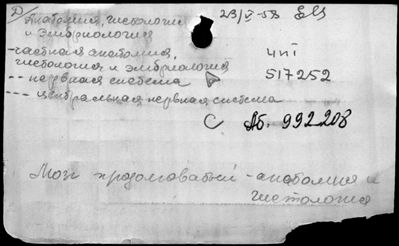 Анатомия, гистология 23/V-58
и эмбриология
-частная анатомия,
гистология и эмбриология
-- нервная система
--- центральная нервная система
чпI
517252
С Аб. 992208
Мозг продолговатый - анатомия и
гистология